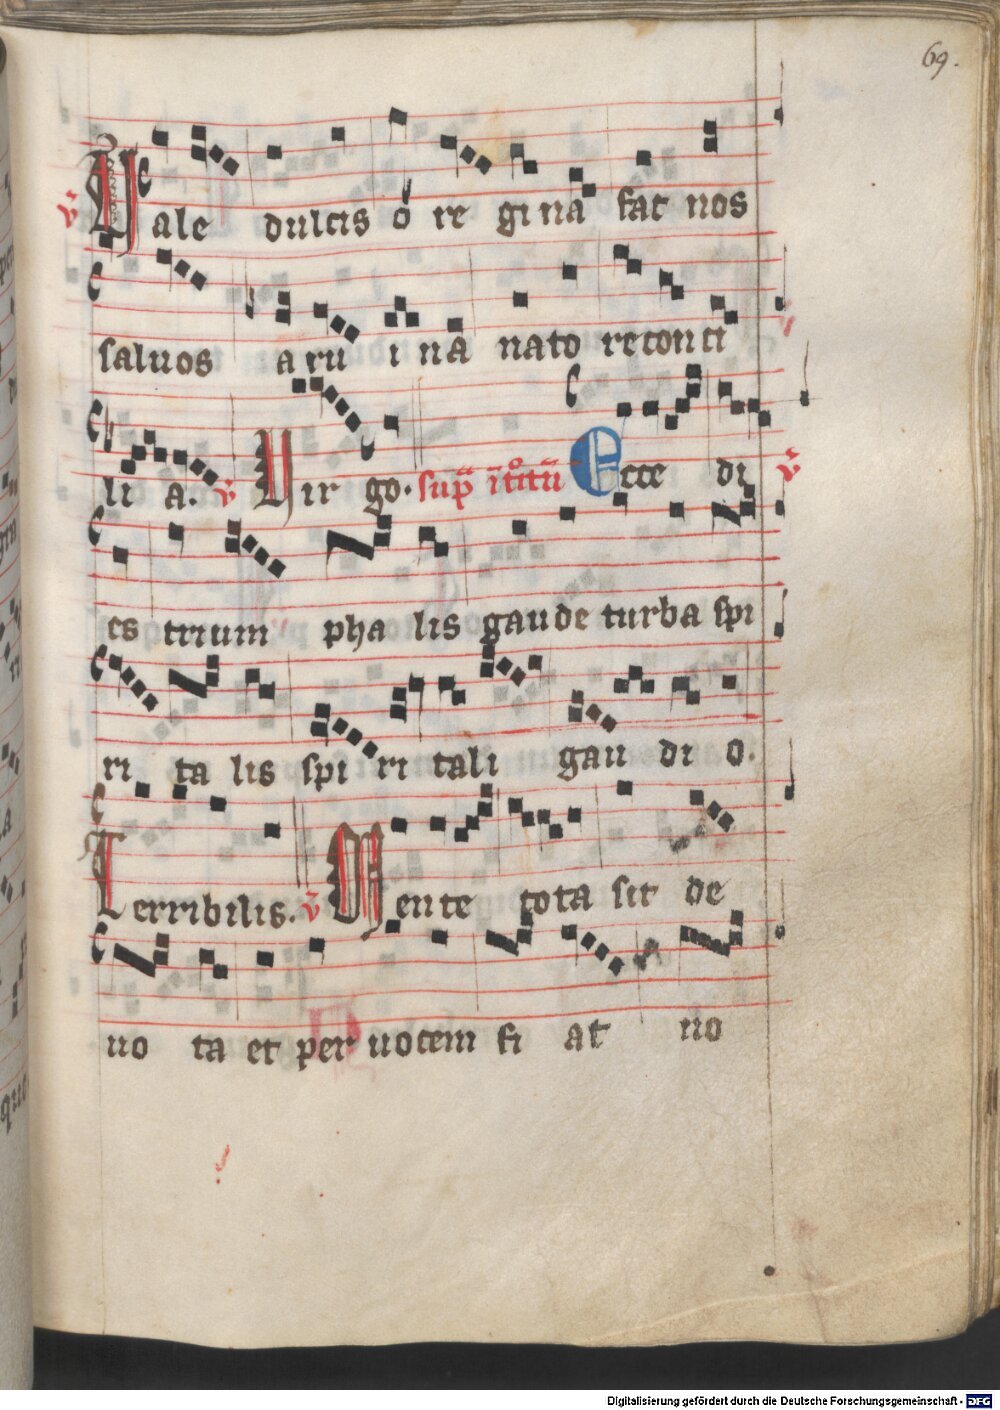 69.
v̄ Vale dulcis o re gi na fac nos
saluos a ru i na nato reconci
li a. v̄ Vir go. sup̄ īt͛itū Ecce di v̄
es trium pha lis gaude turba spi
ri ta lis spi ri tali gau di o.
Terribilis. v̄ Mente tota sit de
uo ta et per uocem fi at no
Digitalisierung gefördert durch die Deutsche Forschungsgemeinschaft - DFG